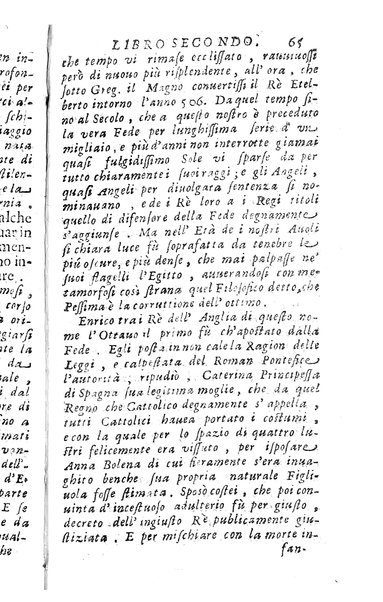 LIBRO SECONDO. 65
che tempo vi rimase ecclissato, rauuiuossi
però di nuouo più risplendente, all' ora, che
sotto Greg. il Magno conuertissi il Rè Etel-
berto intorno l'anno 506. Da quel tempo si-
no al Secolo, che a questo nostro è preceduto
la vera Fede per lunghissima serie d'vn
migliaio, e più d'anni non interrotte giamai
quasi fulgidissimo Sole vi sparse da per
tutto chiaramente i suoi raggi; e gli Angeli,
quasi Angeli per diuolgata sentenza si no-
minauano, e de i Rè loro a i Regi titoli
quello di difensore della Fede degnamente
s'aggiunse. Ma nell' Età de i nostri Auoli
si chiara luce fù soprafatta da tenebre le
più oscure, e più dense, che mai palpasse ne'
suoi flagelli l'Egitto, auuerandosi con me-
tamorfosi così strana quel Filosofico detto, che
Pessima è la corruttione dell' ottimo.
Enrico trai Rè dell' Anglia di questo no-
me l'Ottauo il primo fù ch'apostatò dalla
Fede. Egli posta in non cale la Ragion delle
Leggi, e calpestata del Roman Pontefice
l'autorità, ripudiò, Caterina Principessa
di Spagna sua legitima moglie, che da quel
Regno che Cattolico degnamente s'appella,
tutti Cattolici hauea portato i costumi,
e con la quale per lo spazio di quattro lu-
stri felicemente era vissuto, per isposare
Anna Bolena di cui fieramente s'era inua-
ghito benche sua propria naturale Figli-
uola fosse stimata. Sposò costei, che poi con-
uinta d'incestuoso adulterio fù per giusto,
decreto dell'ingiusto Rè publicamente giu-
stiziata. E per mischiare con la morte in-
fan-